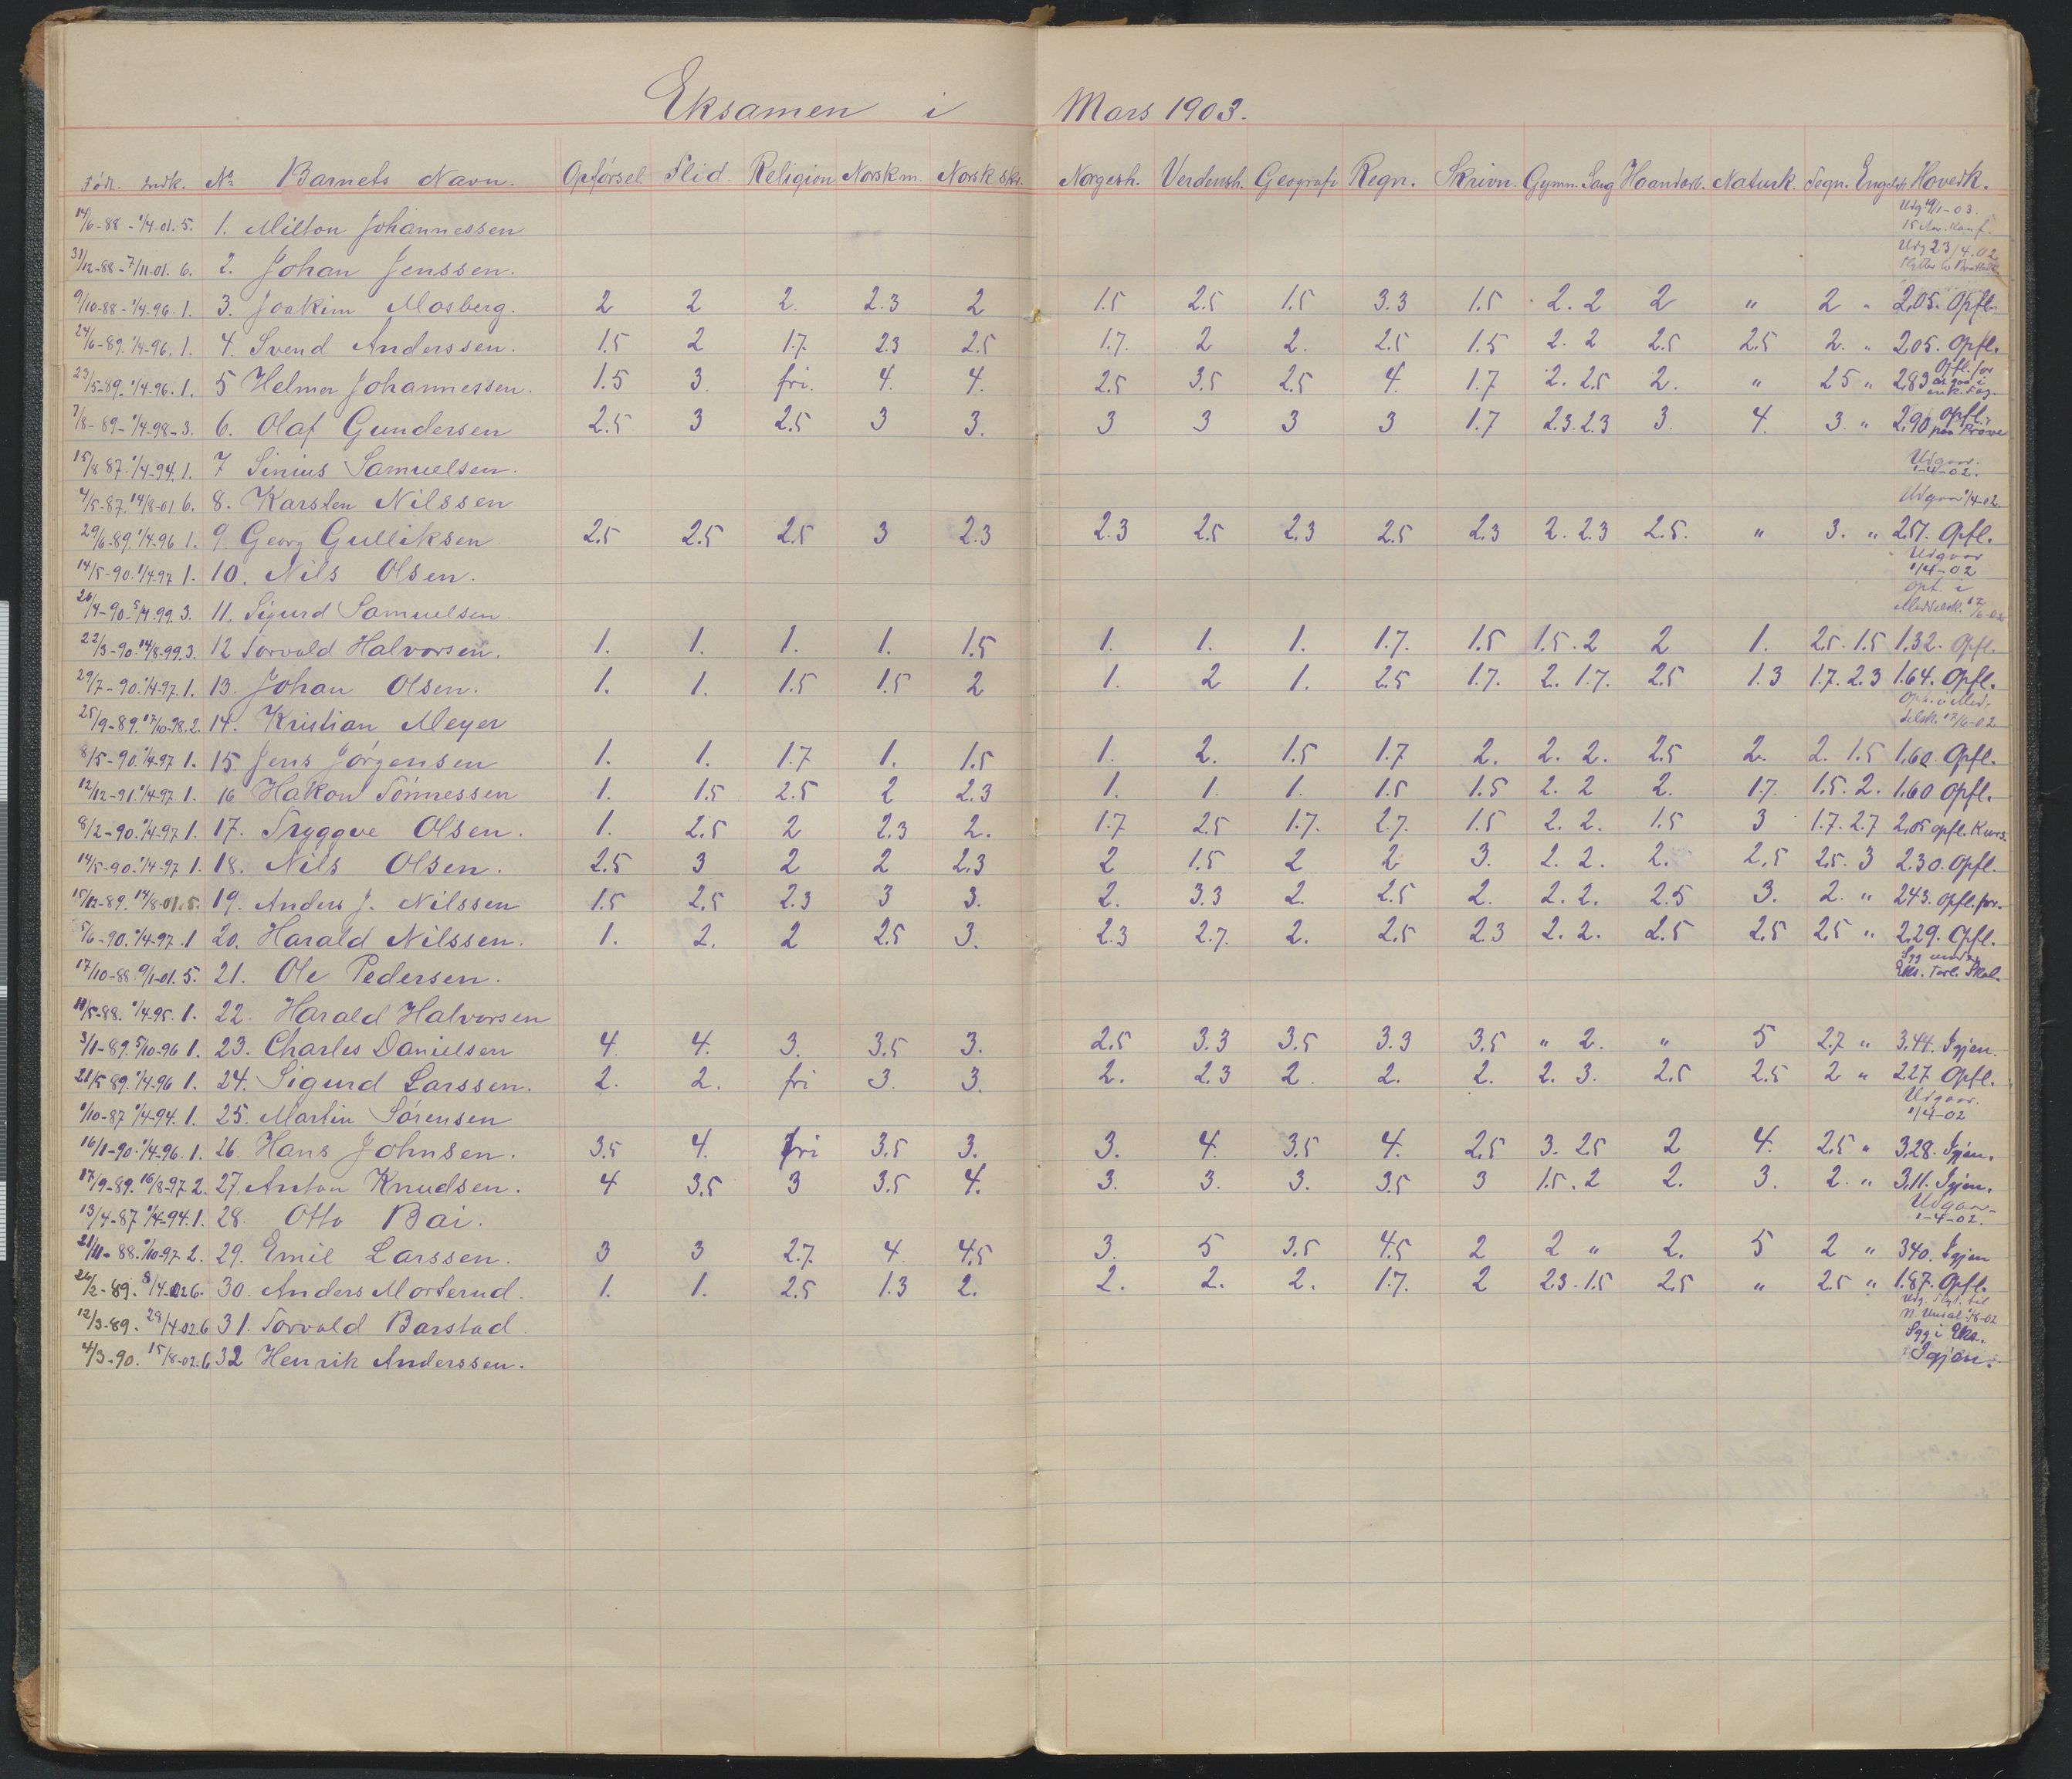 Eksamen i Mars 1903.
Född. Indk. No Barnets Navn. Opförsel. Flid. Religion Norsk m. Norsk skr. Norgesh. Verdensh. Geografi Regn. Skrivn. Gymn. Sang Haandarb. Naturk. Tegn. Engelsk Hovedk.
14/6-88 - 1/4.01. 5. 1. Milton Johannessen Udg 19/1-03.
31/12-88 - 7/11-01. 6. 2. Johan Jenssen. Udg 23/4.02
9/10-88 - 1/4-96. 1. 3. Joakim Mosberg. 2 2 2. 2.3 2 1.5 2.5 1.5 3.3 1.5 2. 2 2 " 2 " 2.05. Opfl.
24/6-89. 1/4-96. 1. 4. Svend Anderssen. 1.5 2 1.7. 2.3 2.5 1.7. 2 2. 2.5 1.5 2. 2 2.5 2.5 2. " 2.05. Opfl.
23/5-89. 1/4-96. 1. 5 Helmer Johannessen. 1.5 3. fri. 4. 4. 2.5 3.5 2.5 4. 1.7 2. 2.5 2. " 2.5 " 2.83 Opfl. for
7/8-89 - 1/4-98 - 3. 6. Olaf Gundersen 2.5 3 2.5 3 3. 3 3 3 3 1.7 2.3. 2.3 3. 4. 3. " 2.90 Opfl. paa Pröve
15/8 87. 1/4-94. 1. 7 Sinius Samuelsen. Udgaar. 1-4-02.
4/5-87. 14/8-01 6. 8. Karsten Nilssen Udgaar 1/4-02.
29/6-89. 1/4-96 1. 9. Georg Gulliksen 2.5 2.5 2.5 3 2.3 2.3 2.5 2.3 2.5 2.3 2. 2.3 2.5. " 3. " 2.57. Opfl.
14/5-90. 1/4-97 1. 10. Nils Olsen. Udgaar 1/4-02
26/4-90. 5/4.99. 3. 11. Sigurd Samuelsen. Opt. i
22/3-90. 14/8-99. 3. 12 Torvald Halvorsen. 1. 1. 1. 1. 1.5 1. 1. 1. 1.7. 1.5 1.5. 2 2 1. 2.5. 1.5 1.32. Opfl.
29/7-90. 1/4-97. 1. 13. Johan Olsen. 1. 1. 1.5 1.5 2 1. 2 1. 2.5 1.7. 2. 1.7. 2.5 1.3 1.7. 2.3 1.64. Opfl.
25/9-89. 17/10-98. 2. 14. Kristian Meyer
8/5-90. 1/4-97 1. 15. Jens Jörgensen 1. 1. 1.7 1. 1.5 1. 2. 1.5 1.7 2. 2. 2. 2.5 2. 2. 1.5 1.60. Opfl.
12/12-91. 1/4-97. 1. 16 Håkon Tönnessen 1. 1.5 2.5 2 2.3 1. 1. 1. 1.5 1.5 2. 2 2. 1.7. 1.5. 2. 1.60 Opfl.
8/2-90. 1/4-97 1. 17. Tryggve Olsen. 1. 2.5 2 2.3 2. 1.7 2.5 1.7. 2.7. 1.5 2. 2. 1.5 3 1.7. 2.7 2.05 opfl. Kurs.
14/5-90. 1/4-97 1. 18. Nils Olsen. 2.5 3 2 2 2.3 2 1.5 2 2 3. 2. 2. 2. 2.5 2.5. 3 2.30. Opfl.
15/12-89. 14/8-01. 5. 19. Anders J. Nilssen 1.5 2.5 2.3 3 3. 2. 3.3 2. 2.5 2. 2. 2. 2.5 3. 2. " 2.43. Opfl. for.
5/6-90. 1/4-97. 1 20. Harald Nilssen. 1. 2. 2 2.5 3. 2.3 2.7. 2. 2.5 2.3 2. 2. 2.5 2.5 2.5 " 2.29. Opfl.
17/10-88 9/1-01. 5. 21. Ole Pedersen. Syg under Eks.
11/5-88. 1/4-95. 1. 22. Harald Halvorsen
3/1-89. 5/10-96 1. 23. Charles Danielsen 4. 4. 3. 3.5 3. 2.5 3.3 3.5 3.3 3.5 " 2. " 5 2.7 " 3.44. Igjen.
21/5 89. 1/4-96 1. 24. Sigurd Larssen. 2. 2. fri 3. 3. 2. 2.3 2. 2. 2. 2. 3. 2.5 2.5 2 " 2.27 Opfl.
1/10-87 1/4-94. 1. 25. Martin Sörensen Udgaar. 1/4-02
16/1-90. 1/4-96. 1. 26. Hans Johnsen. 3.5 4. fri 3.5 3. 3. 4. 3.5 4. 2.5 3. 2.5 2 4. 2.5 " 3.28. Igjen.
17/9-89. 16/8-97 2. 27. Anton Knudsen. 4 3.5 3 3.5 4. 3. 3. 3. 3.5 3 1.5. 2 2. 3. 2. " 3.11. Igjen.
13/4-87 1/4-94. 1. 28. Otto Bai. Udgaar. 1-4-02.
21/11-88. 1/10-97. 2. 29. Emil Larssen. 3 3 2.7. 4 4.5 3. 5 3.5 4.5 2 2 " 2. 5 2 " 3.40. Igjen
26/2-89. 8/4-02 6. 30. Anders Morterud. 1. 1. 2.5 1.3 2. 2. 2. 2. 1.7. 2 2.3. 1.5 2.5 " 2.5 " 1.87. Opfl.
12/3-89. 29/4-02. 6 31. Torvald Barstad. Udg. Flyt. til
4/3-90. 15/8-02. 6 32 Henrik Anderssen. Syg i Eks. Igjen.